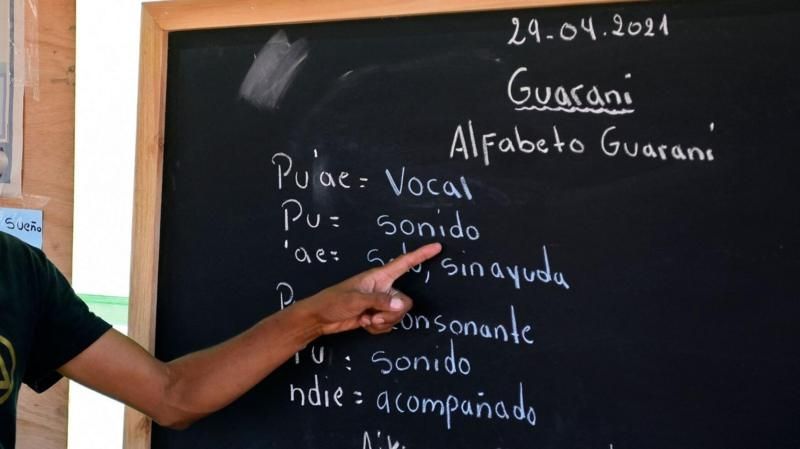 29-04.2021
Guaraní
Alfabeto Guaraní
Pu'ae = Vocal
Pu = sonido
'ae: solo, sin ayuda
consonante
Pu : sonido
ndie = acompañado
sueño